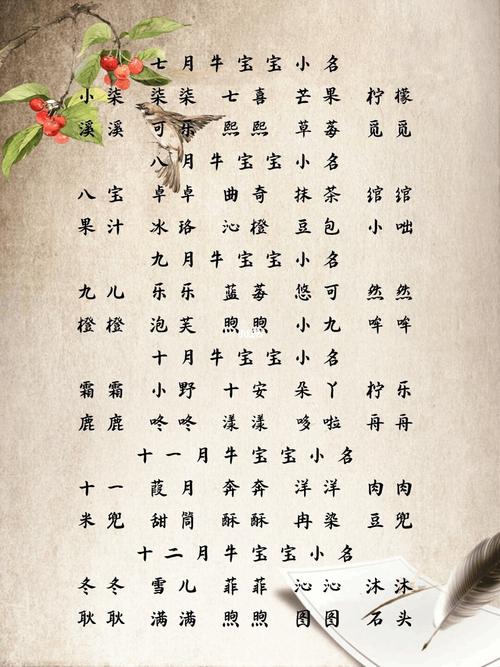 七月牛宝宝小名
小柒 柒柒 七喜 芒果 柠檬
溪溪 可乐 熙熙 草莓 觅觅
八月牛宝宝小名
八宝 卓卓 曲奇 抹茶 绾绾
果汁 冰珞 沁橙 豆包 小咄
九月牛宝宝小名
九儿 乐乐 蓝莓 悠可 然然
橙橙 泡芙 煦煦 小九 哞哞
十月牛宝宝小名
霜霜 小野 十安 朵丫 柠乐
鹿鹿 咚咚 漾漾 哆啦 冉冉
十一月牛宝宝小名
十一 葭月 奔奔 洋洋 肉肉
米兜 甜筒 酥酥 冉染 豆兜
十二月牛宝宝小名
冬冬 雪儿 菲菲 沁沁 沐沐
耿耿 满满 煦煦 图图 石头